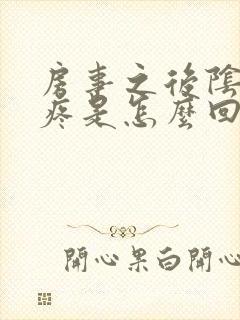 房事之後陰
疼是怎麼回
開心果白開心